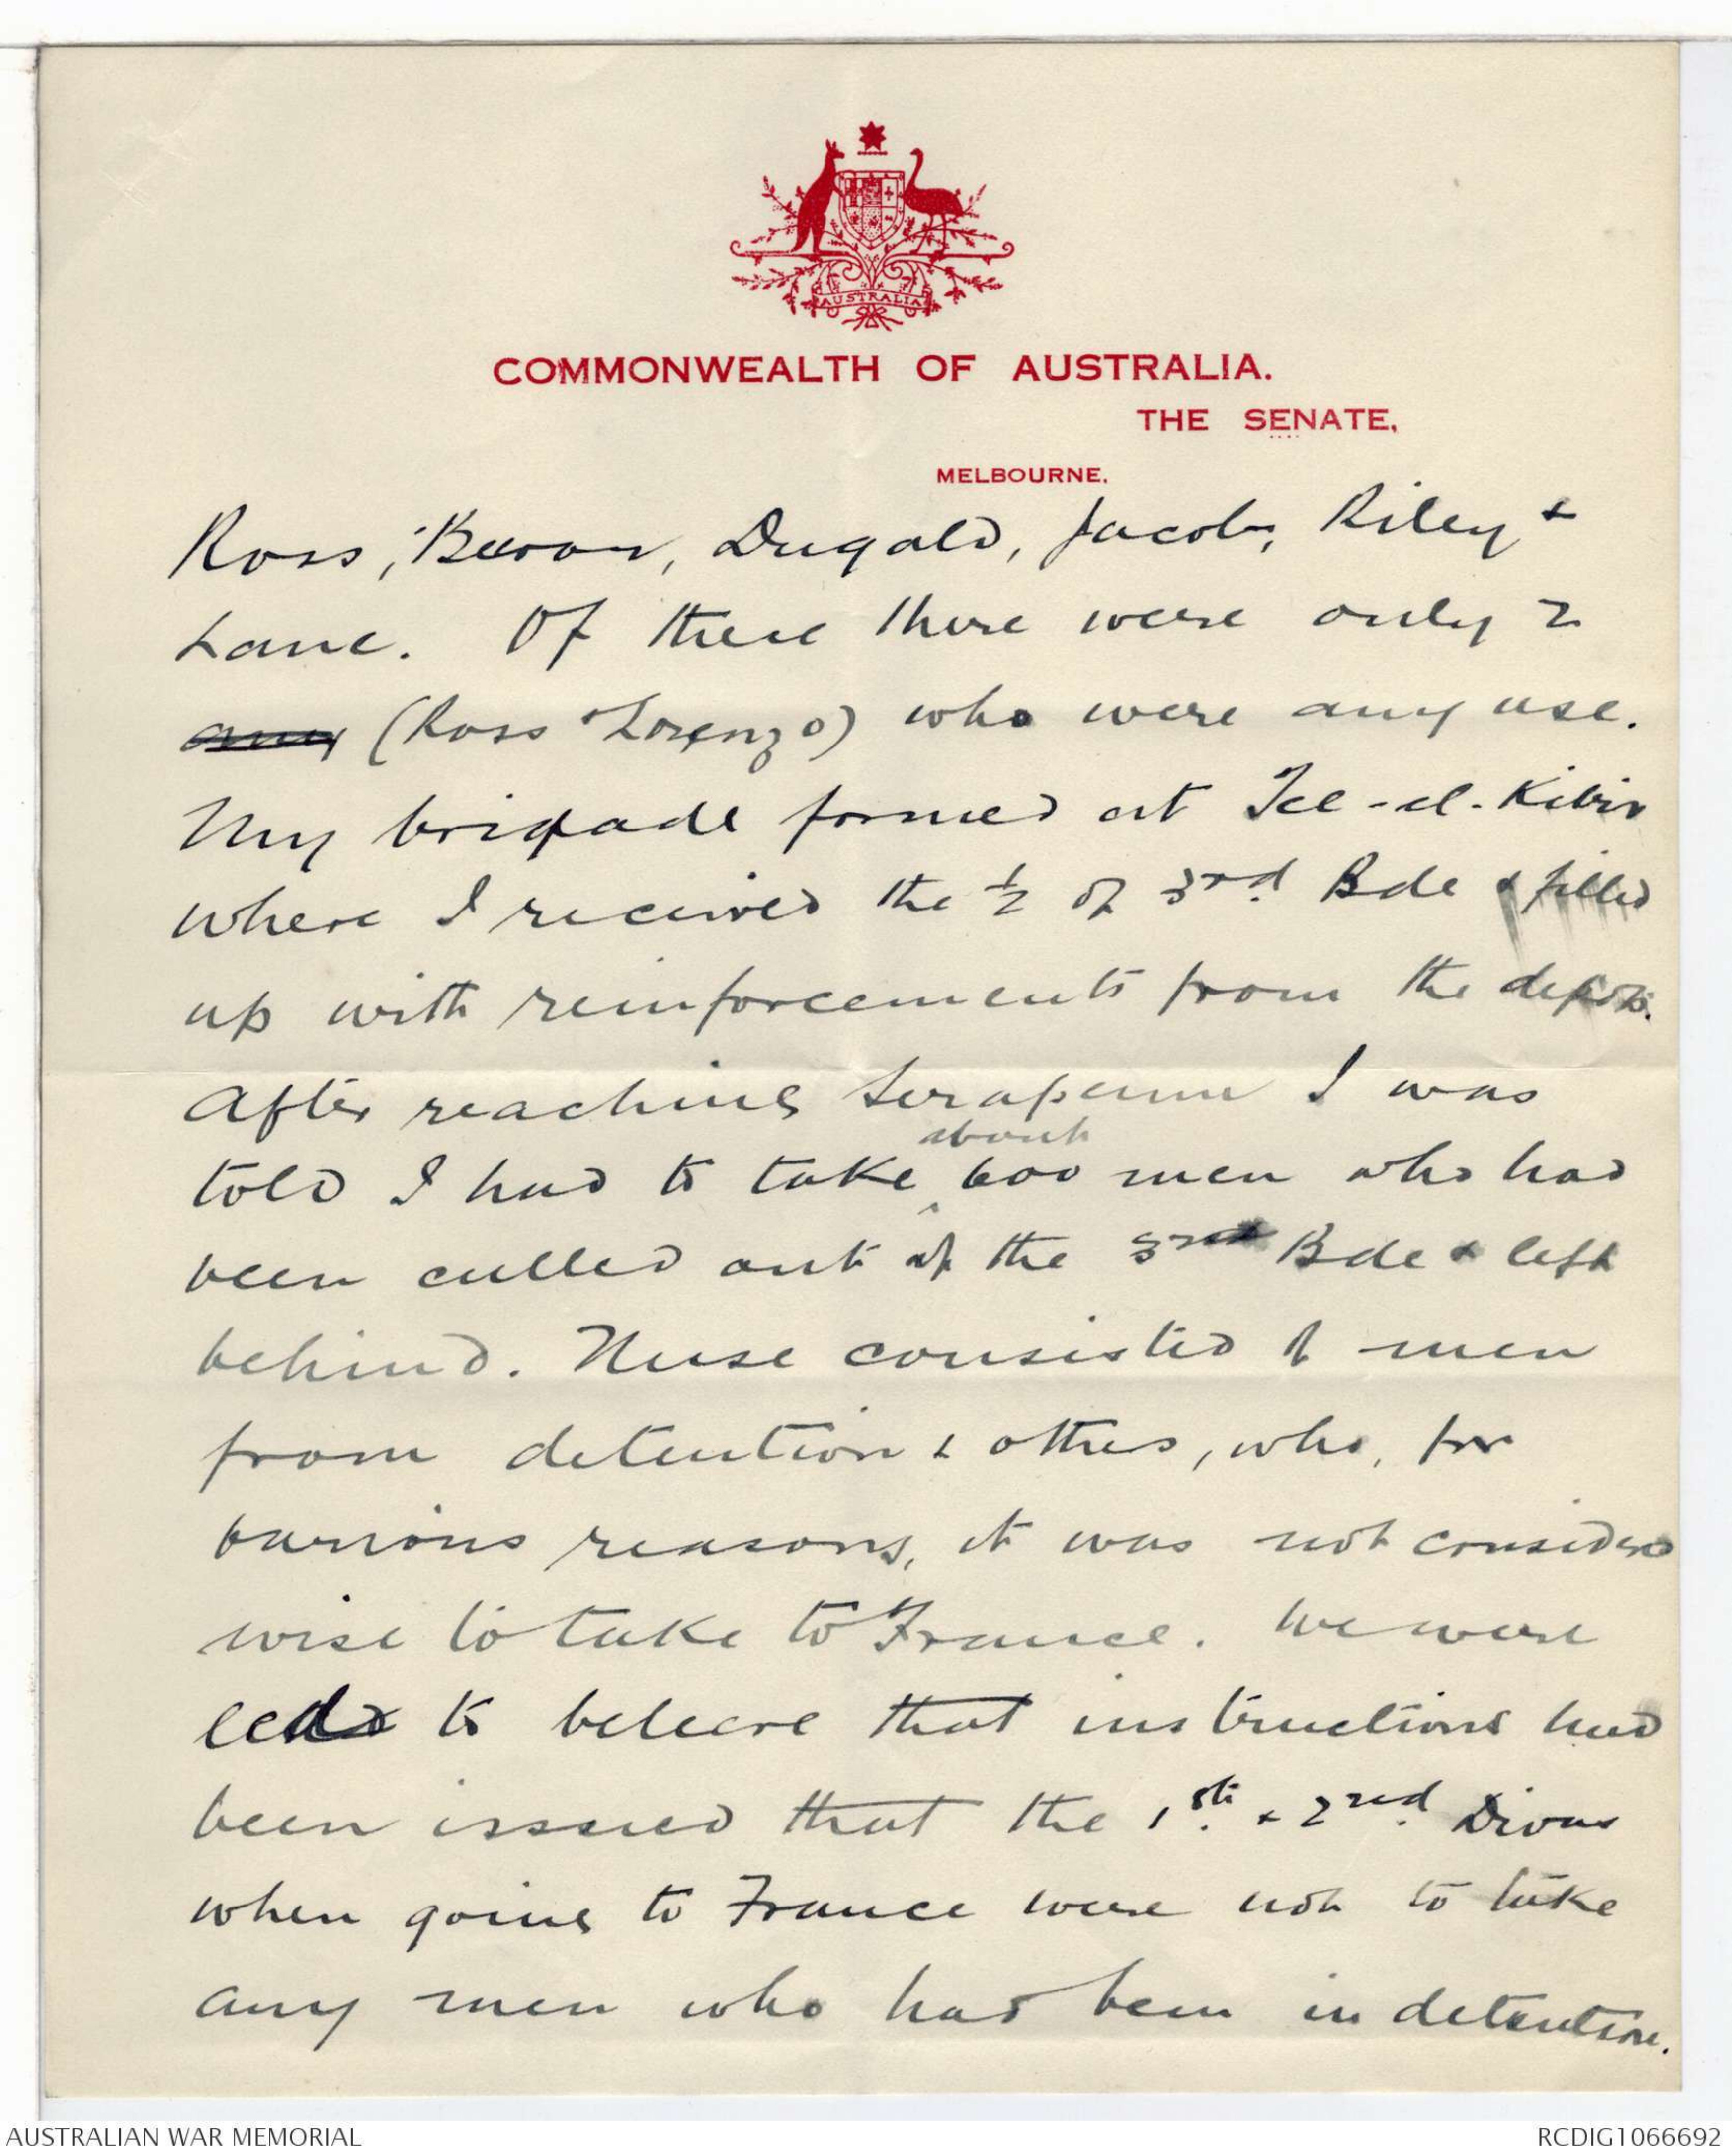 AUSTRALIA
COMMONWEALTH OF AUSTRALIA.
THE SENATE,
MELBOURNE.
Ross, Dugald, Jacob, Riley +
Lane. Of these there were only 2
any (Ross + Lorenzo) who were any use.
My brigade formed at Tel-el-Kibir
where I received the ½ of 3rd. Bde & filled
up with reinforcements from the depots.
After reaching Serapeum I was
about
told I had to take 600 men who had
been culled out of the 3rd Bde & left
behind. These consisted of men
from detention & others, who, for
various reasons, it was not considered
wise to take to France. We were
led to believe that instructions had
been issued that the 1st. & 2nd. Divns
when going to France were not to take
any men who had been in detention.
AUSTRALIAN WAR MEMORIAL
RCDIG1066692